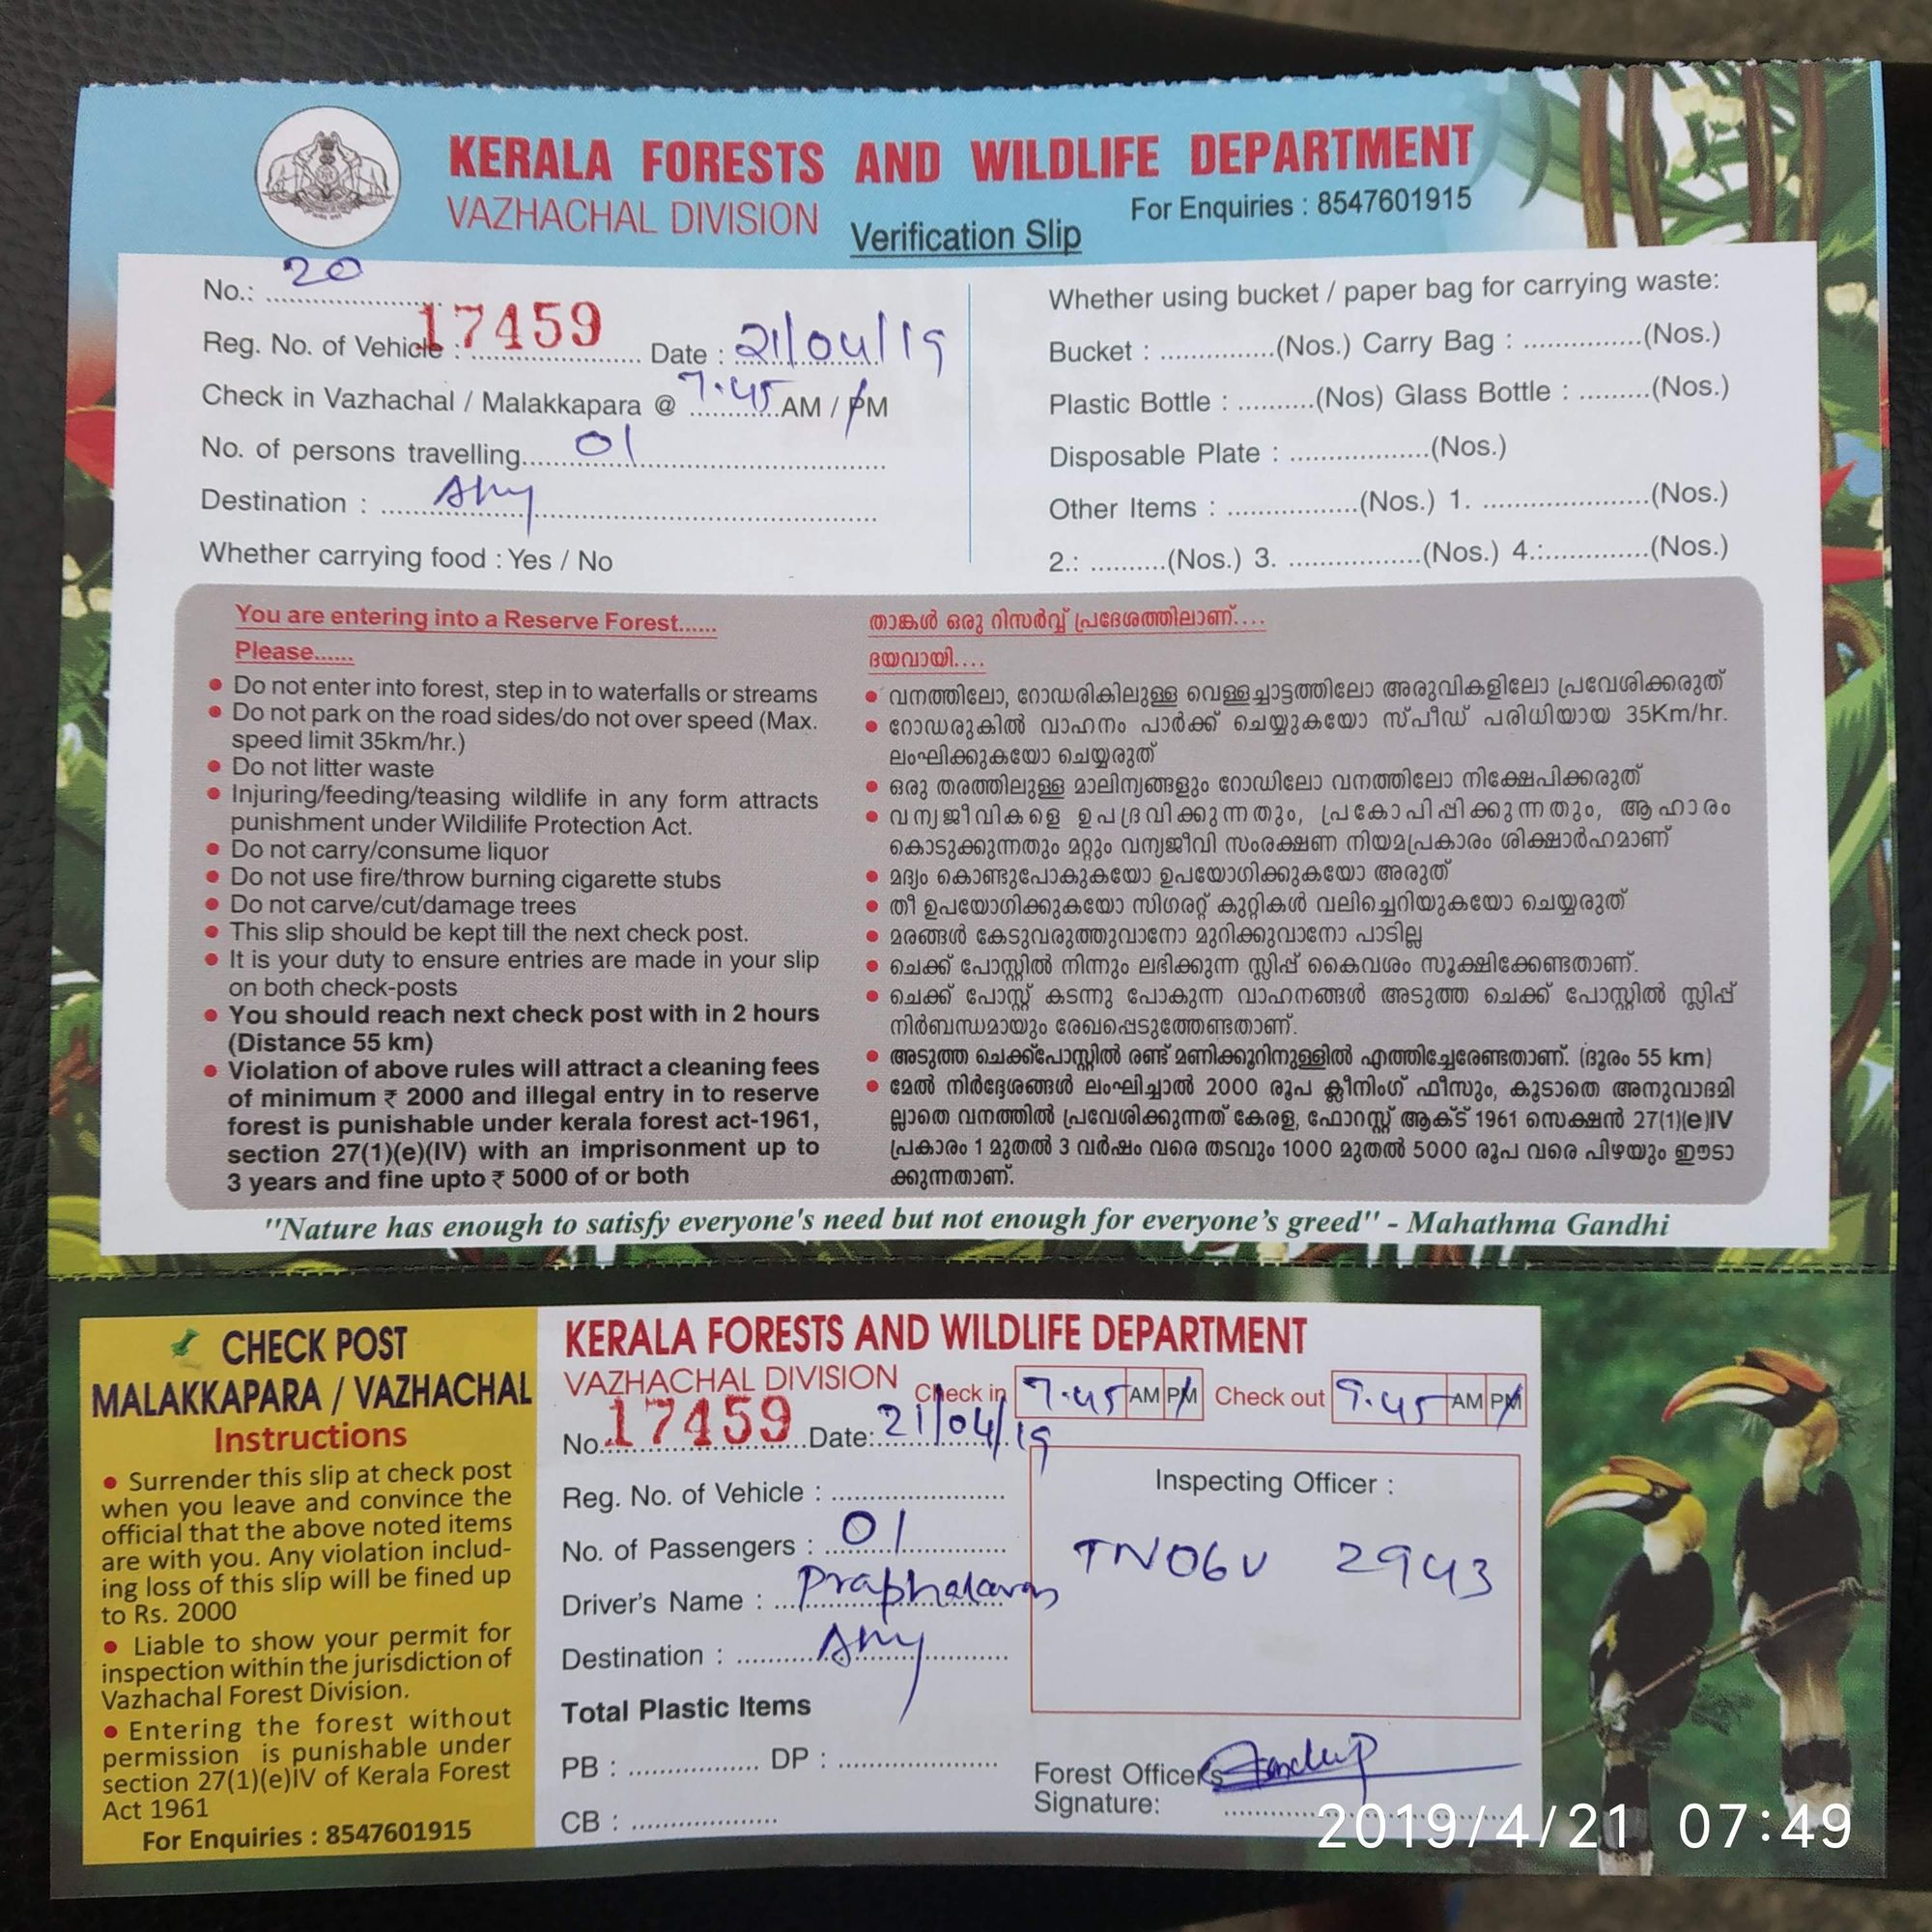 KERALA FORESTS AND WILDLIFE DEPARTMENT
VAZHACHAL DIVISION
Verification Slip
For Enquiries : 8547601915
No.: 20
Reg. No. of Vehicle : 17459 Date : 21/04/19
Check in Vazhachal / Malakkapara @ 7.45 AM / PM
No. of persons travelling 01
Destination :
Whether carrying food : Yes / No
Whether using bucket / paper bag for carrying waste:
Bucket : ...............(Nos.) Carry Bag : ...............(Nos.)
Plastic Bottle : ..........(Nos) Glass Bottle : .........(Nos.)
Disposable Plate : ..................(Nos.)
Other Items : .................(Nos.) 1. .....................(Nos.)
2.: ..........(Nos.) 3. .................(Nos.) 4.:.............(Nos.)
You are entering into a Reserve Forest......
Please......
• Do not enter into forest, step in to waterfalls or streams
• Do not park on the road sides/do not over speed (Max.
speed limit 35km/hr.)
• Do not litter waste
• Injuring/feeding/teasing wildlife in any form attracts
punishment under Wildilife Protection Act.
• Do not carry/consume liquor
• Do not use fire/throw burning cigarette stubs
• Do not carve/cut/damage trees
• This slip should be kept till the next check post.
• It is your duty to ensure entries are made in your slip
on both check-posts
• You should reach next check post with in 2 hours
(Distance 55 km)
• Violation of above rules will attract a cleaning fees
of minimum ₹ 2000 and illegal entry in to reserve
forest is punishable under kerala forest act-1961,
section 27(1)(e)(IV) with an imprisonment up to
3 years and fine upto ₹ 5000 of or both
താങ്കൾ ഒരു റിസർവ്വ് പ്രദേശത്തിലാണ്....
ദയവായി....
• വനത്തിലോ, റോഡരികിലുള്ള വെള്ളച്ചാട്ടത്തിലോ അരുവികളിലോ പ്രവേശിക്കരുത്
• റോഡരുകിൽ വാഹനം പാർക്ക് ചെയ്യുകയോ സ്പീഡ് പരിധിയായ 35Km/hr.
ലംഘിക്കുകയോ ചെയ്യരുത്
• ഒരു തരത്തിലുള്ള മാലിന്യങ്ങളും റോഡിലോ വനത്തിലോ നിക്ഷേപിക്കരുത്
• വന്യജീവികളെ ഉപദ്രവിക്കുന്നതും, പ്രകോപിപ്പിക്കുന്നതും, ആഹാരം
കൊടുക്കുന്നതും മറ്റും വന്യജീവി സംരക്ഷണ നിയമപ്രകാരം ശിക്ഷാർഹമാണ്
• മദ്യം കൊണ്ടുപോകുകയോ ഉപയോഗിക്കുകയോ അരുത്
• തീ ഉപയോഗിക്കുകയോ സിഗരറ്റ് കുറ്റികൾ വലിച്ചെറിയുകയോ ചെയ്യരുത്
• മരങ്ങൾ കേടുവരുത്തുവാനോ മുറിക്കുവാനോ പാടില്ല
• ചെക്ക് പോസ്റ്റിൽ നിന്നും ലഭിക്കുന്ന സ്ലിപ്പ് കൈവശം സൂക്ഷിക്കേണ്ടതാണ്.
• ചെക്ക് പോസ്റ്റ് കടന്നു പോകുന്ന വാഹനങ്ങൾ അടുത്ത ചെക്ക് പോസ്റ്റിൽ സ്ലിപ്പ്
നിർബന്ധമായും രേഖപ്പെടുത്തേണ്ടതാണ്.
• അടുത്ത ചെക്ക്പോസ്റ്റിൽ രണ്ട് മണിക്കൂറിനുള്ളിൽ എത്തിച്ചേരേണ്ടതാണ്. (ദൂരം 55 km)
• മേൽ നിർദ്ദേശങ്ങൾ ലംഘിച്ചാൽ 2000 രൂപ ക്ലീനിംഗ് ഫീസും, കൂടാതെ അനുവാദമി
ല്ലാതെ വനത്തിൽ പ്രവേശിക്കുന്നത് കേരള, ഫോറസ്റ്റ് ആക്ട് 1961 സെക്ഷൻ 27(1)(e)IV
പ്രകാരം 1 മുതൽ 3 വർഷം വരെ തടവും 1000 മുതൽ 5000 രൂപ വരെ പിഴയും ഈടാ
ക്കുന്നതാണ്.
"Nature has enough to satisfy everyone's need but not enough for everyone's greed" - Mahathma Gandhi
CHECK POST
MALAKKAPARA / VAZHACHAL
Instructions
• Surrender this slip at check post
when you leave and convince the
official that the above noted items
are with you. Any violation includ-
ing loss of this slip will be fined up
to Rs. 2000
• Liable to show your permit for
inspection within the jurisdiction of
Vazhachal Forest Division.
• Entering the forest without
permission is punishable under
section 27(1)(e)IV of Kerala Forest
Act 1961
For Enquiries : 8547601915
KERALA FORESTS AND WILDLIFE DEPARTMENT
VAZHACHAL DIVISION
Check in 7.45 AM PM Check out 9.45 AM PM
No. 17459 Date: 21/04/19
Reg. No. of Vehicle :
No. of Passengers : 01
Driver's Name :
Destination :
Total Plastic Items
PB : .................. DP : ......................
CB : ....................
Inspecting Officer :
TN06U 2943
Forest Officers
Signature:
2019/4/21 07:49